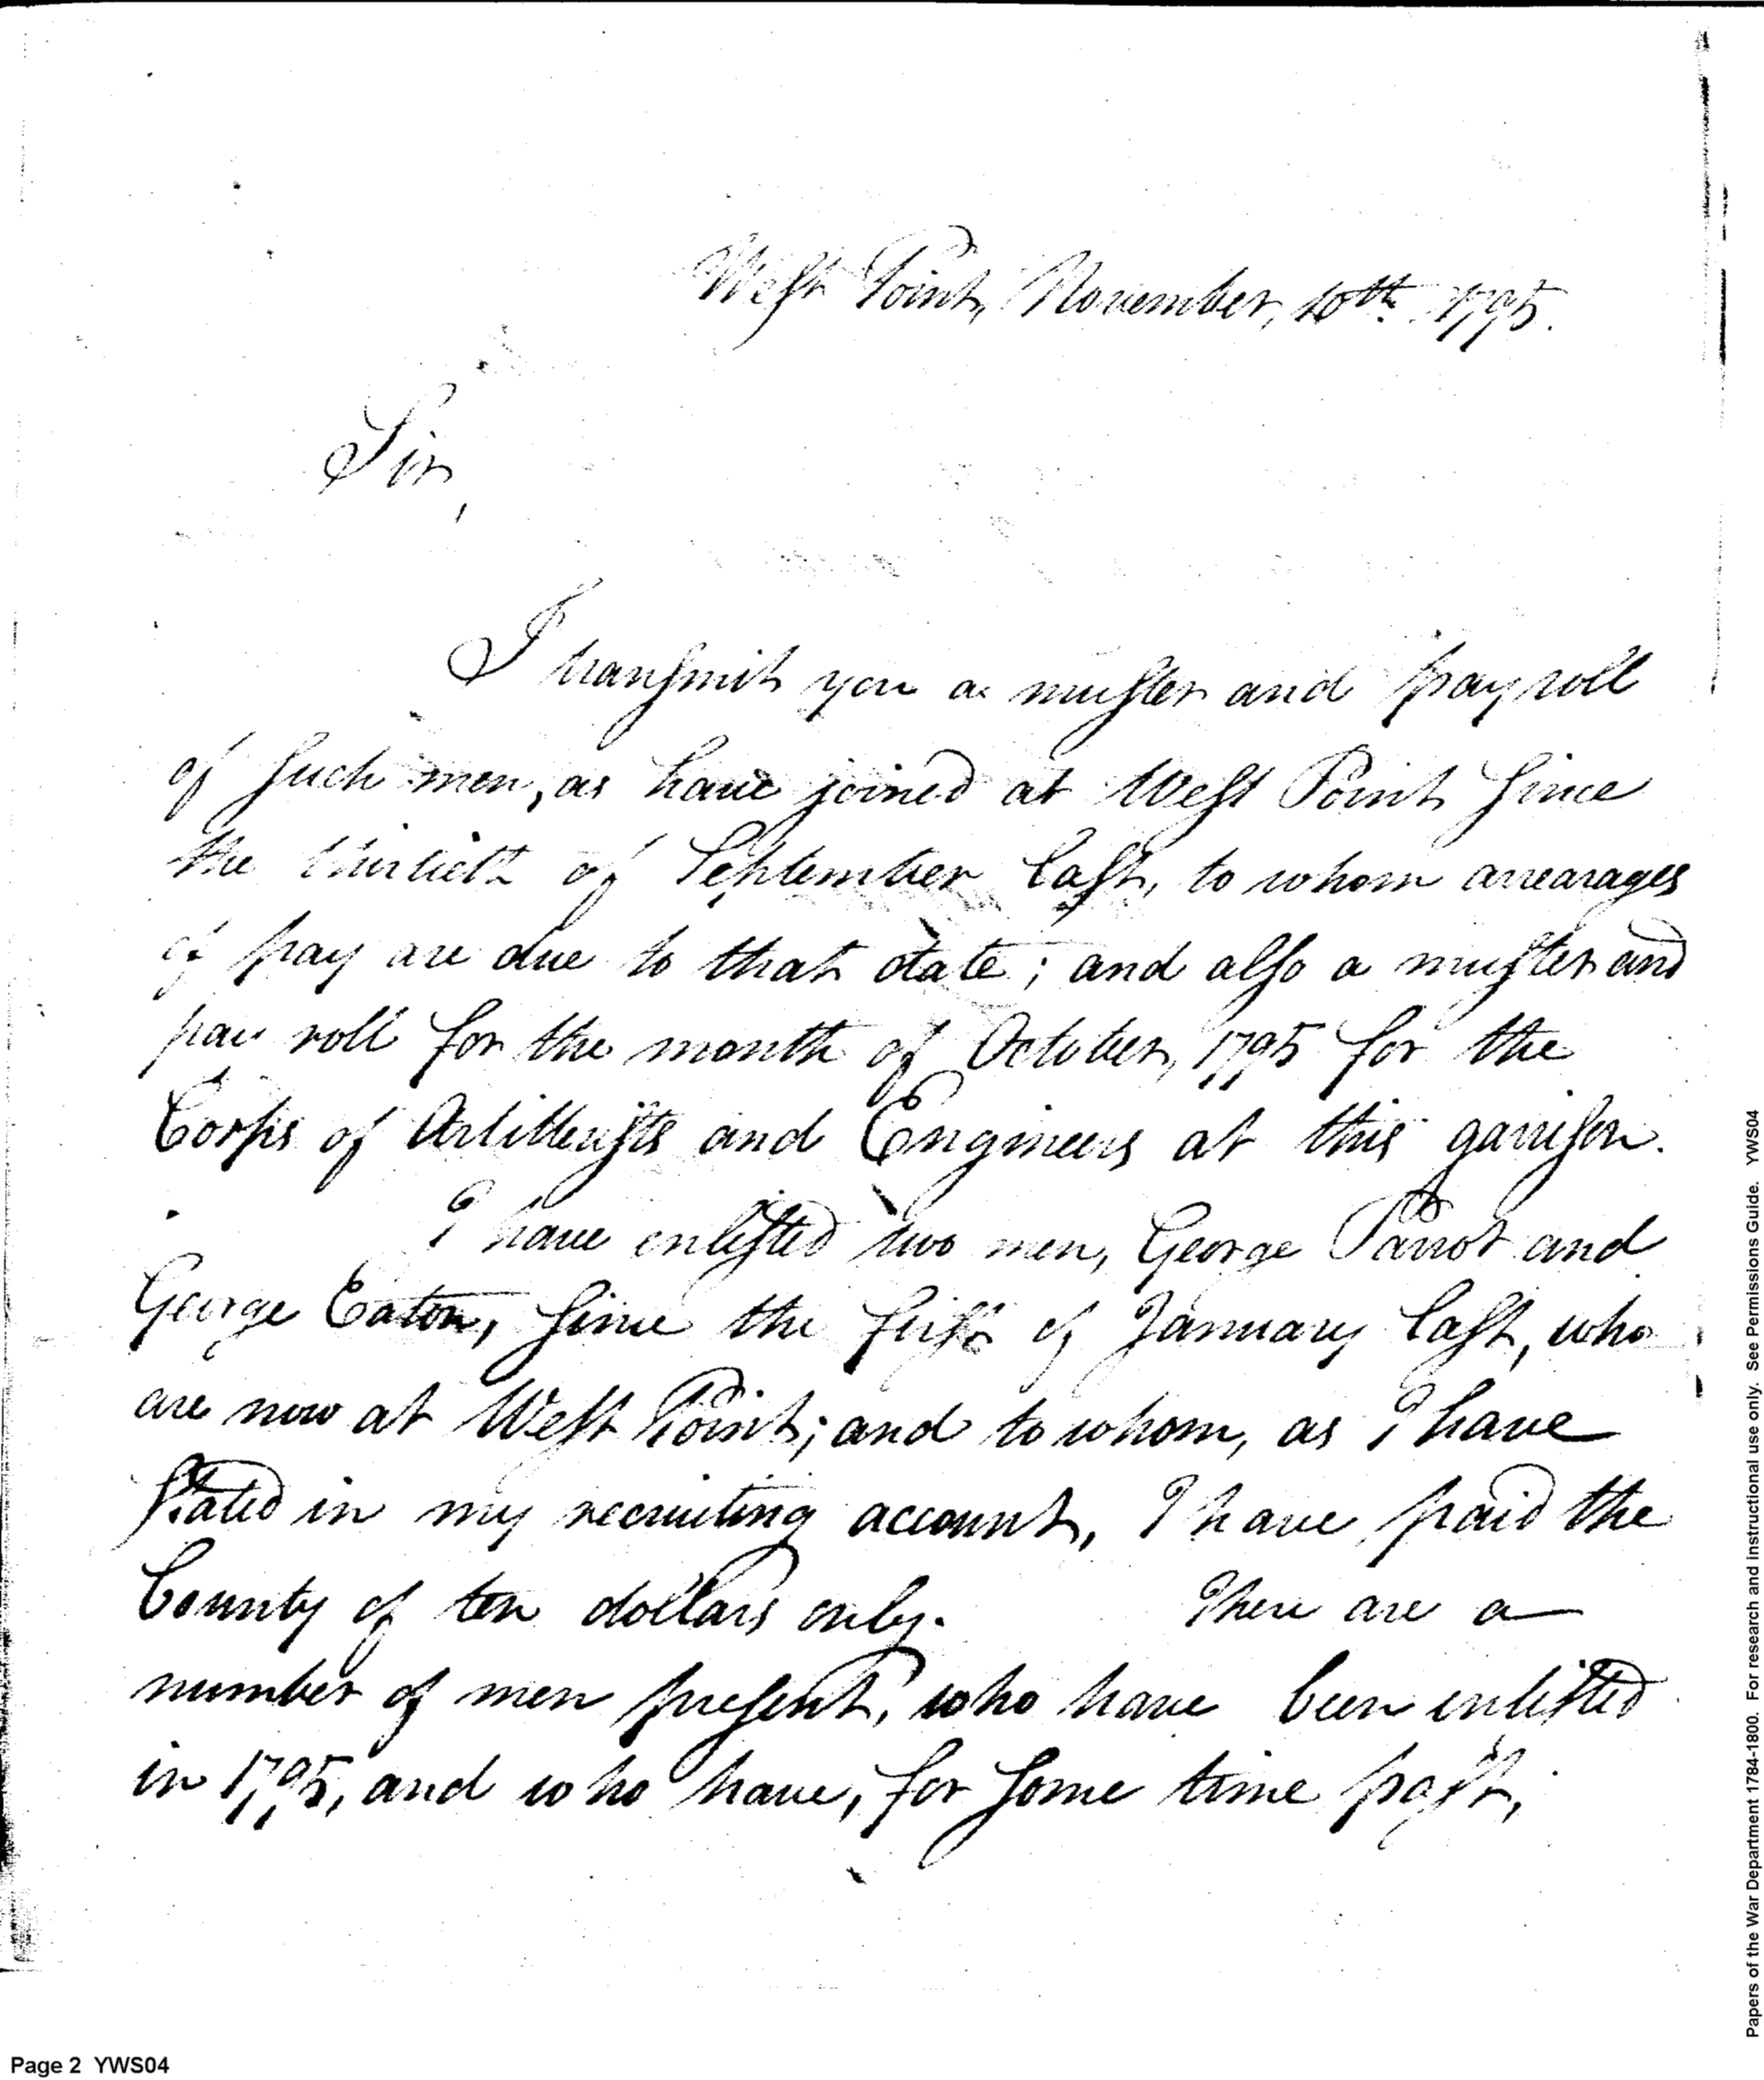 West Point, November, 10th. 1795.
Sir,
I transmit you a muster and pay roll
of such men, as have joined at West Point since
the thirtieth of September last, to whom arrearages
of pay are due to that date; and also a muster and
pay roll for the month of October, 1795 for the
Corps of Artillerists and Engineers at this garrison.
I have enlisted two men, George Parrot and
George Eaton, since the first of January last, who
are now at West Point; and to whom, as I have
stated in my recruiting account, I have paid the
bounty of ten dollars only. There are a
number of men present, who have been enlisted
in 1795, and who have, for some time past,
Page 2 YWS04
Papers of the War Department 1784-1800. For research and instructional use only. See Permissions Guide. YWS04